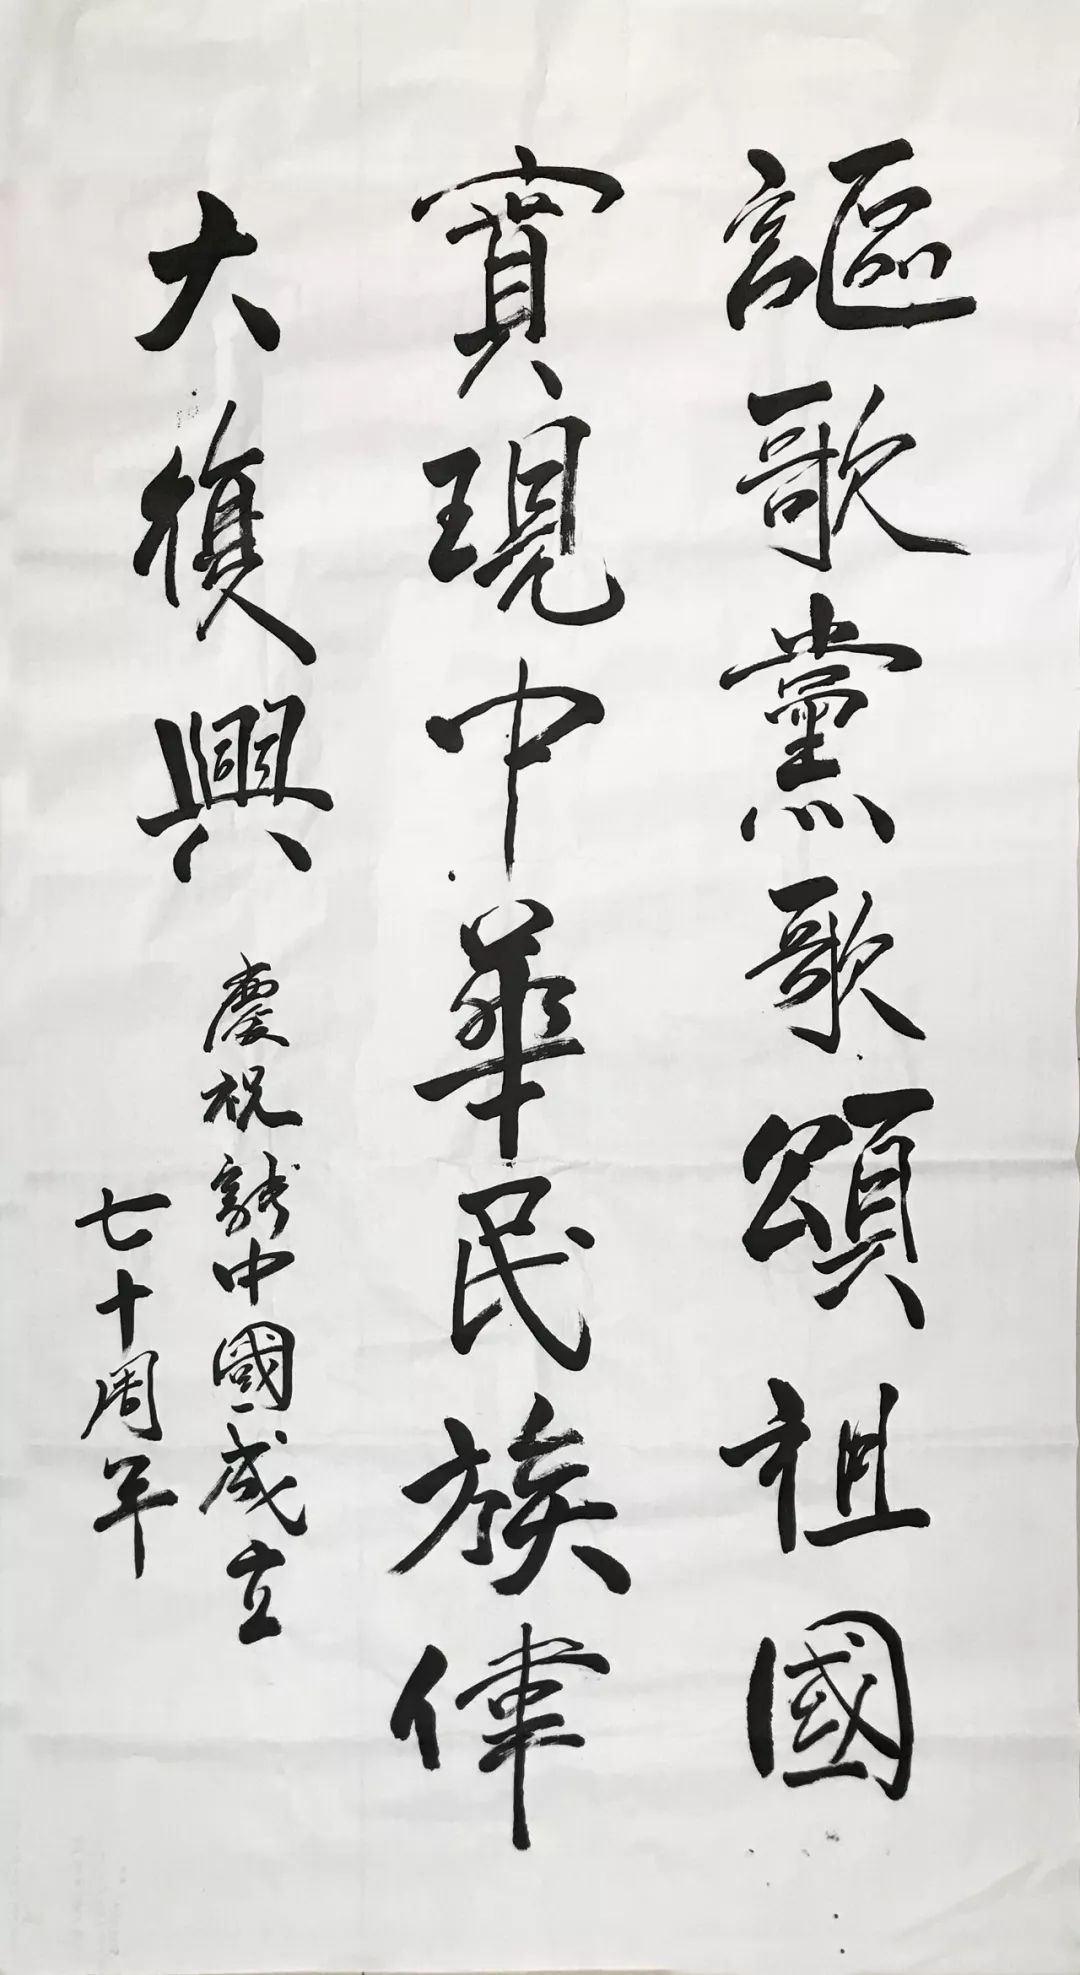 謳歌黨歌頌祖國
實現中華民族偉
大復興
慶祝新中國成立
七十周年